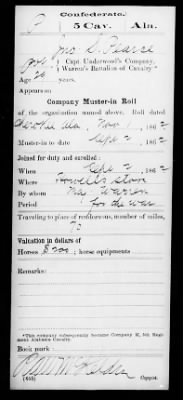 Confederate.
P 5 Cav. Ala.
Jno S. Pearce
Pvt, Capt. Underwood's Company,
Warren's Battalion of Cavalry.*
Age 29 years.
Appears on
Company Muster-in Roll
of the organization named above. Roll dated
Ala, Nov 1, 1862
Muster-in to date Sept 2, 1862
Joined for duty and enrolled:
When Sept 2, 1862
Where Store
By whom Warren
Period for the war
Traveling to place of rendezvous, number of miles,
70
Valuation in dollars of
Horses $200; horse equipments
Remarks:
*This company subsequently became Company K, 5th Regiment Alabama Cavalry.
Book mark:
(645) Copyist.